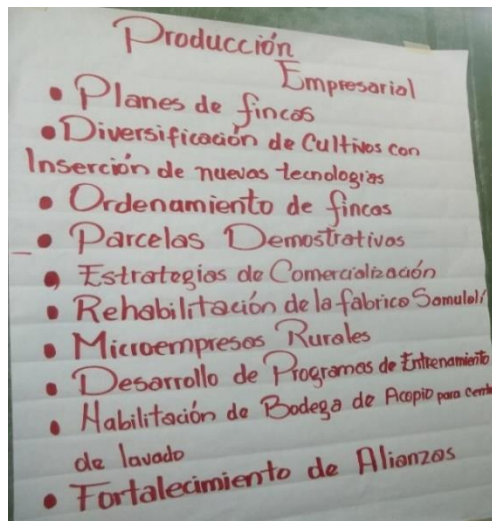 Producción
Empresarial
• Planes de fincas
• Diversificación de Cultivos con
Inserción de nuevas tecnologías
• Ordenamiento de fincas
• Parcelas Demostrativas
• Estrategias de Comercialización
• Rehabilitación de la fábrica Samulalí
• Microempresas Rurales
• Desarrollo de Programas de Entrenamiento
• Habilitación de Bodega de Acopio para
de lavado
• Fortalecimiento de Alianzas